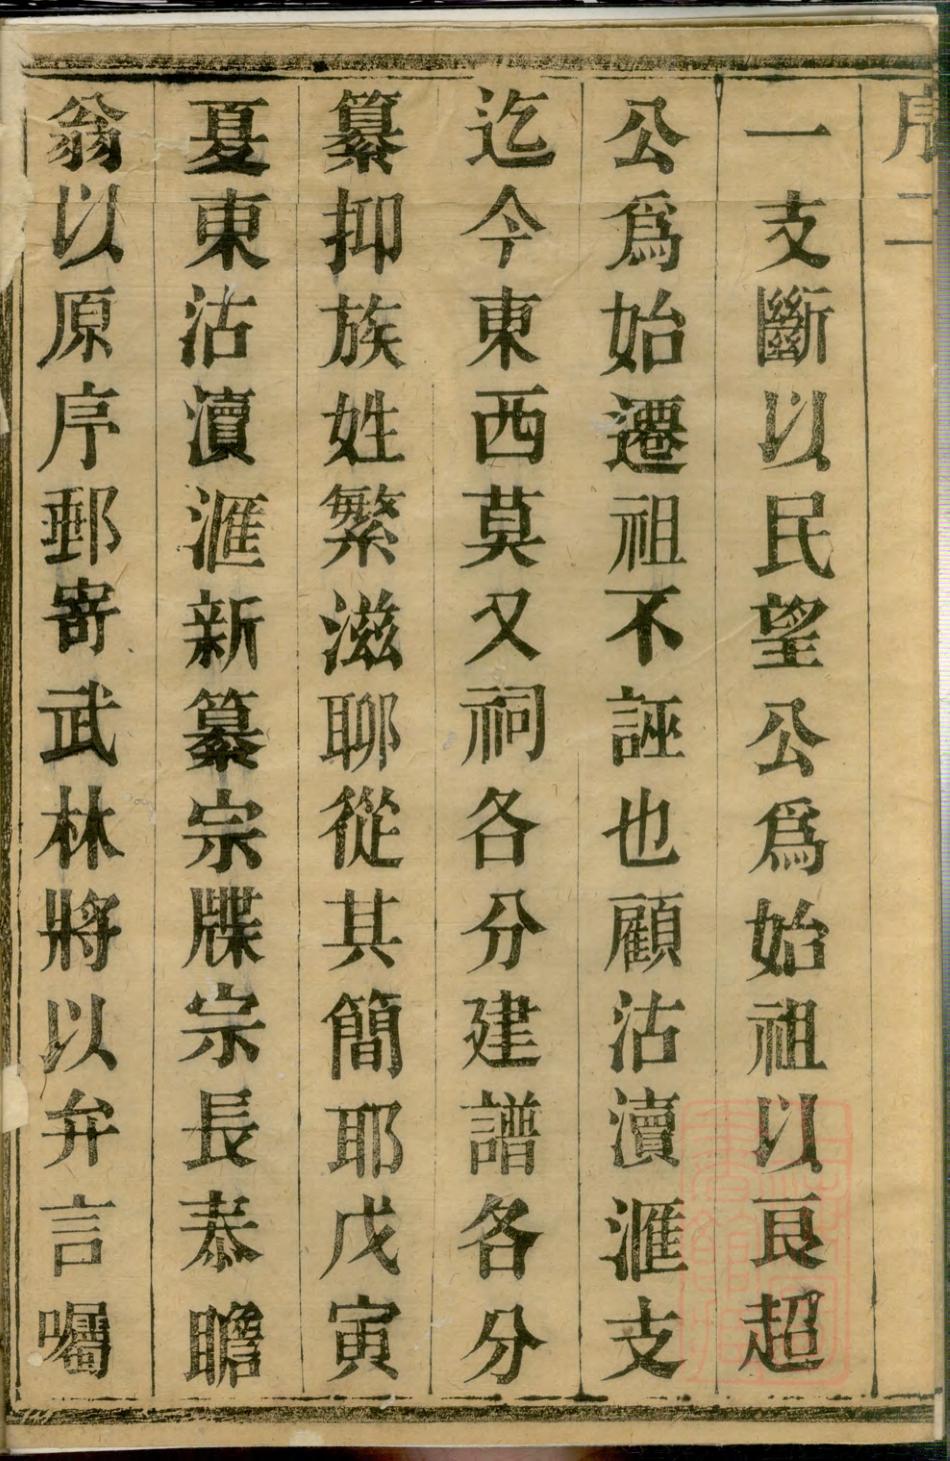 序二
一支斷以民望公爲始祖以良超
公爲始遷祖不誣也顧沽瀆滙支
迄今東西莫又祠各分建譜各分
纂抑族姓繁滋聊從其簡耶戊寅
夏東沽瀆滙新纂宗牒宗長泰瞻
翁以原序郵寄武林將以弁言囑